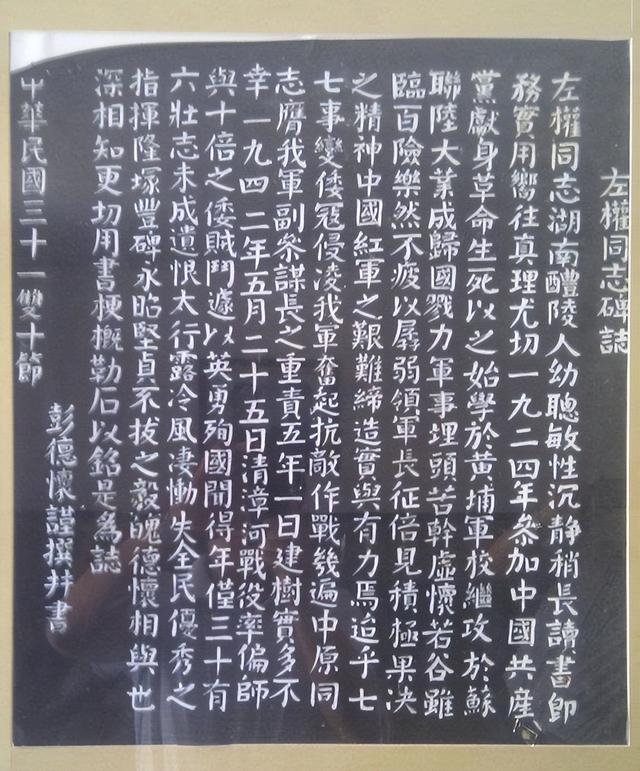 左權同志碑誌
左權同志湖南醴陵人幼聰敏性沉靜稍長讀書即
務實用嚮往真理尤切一九二四年參加中國共產
黨獻身革命生死以之始學於黃埔軍校繼攻於蘇
聯陸大業成歸國戮力軍事埋頭苦幹虛懷若谷雖
臨百險樂然不疲以孱弱領軍長征倍見積極果決
之精神中國紅軍之艱難締造實與有力焉迨乎七
七事變倭寇侵凌我軍奮起抗敵作戰幾遍中原同
志膺我軍副參謀長之重責五年一日建樹實多不
幸一九四二年五月二十五日清漳河戰役率偏師
與十倍之倭賊鬥遽以英勇殉國聞得年僅三十有
六壯志未成遺恨太行露冷風淒慟失全民優秀之
指揮隆塚豐碑永昭堅貞不拔之毅魄德懷相與也
深相知更切用書梗概勒石以銘是為誌
中華民國三十一雙十節
彭德懷謹撰并書